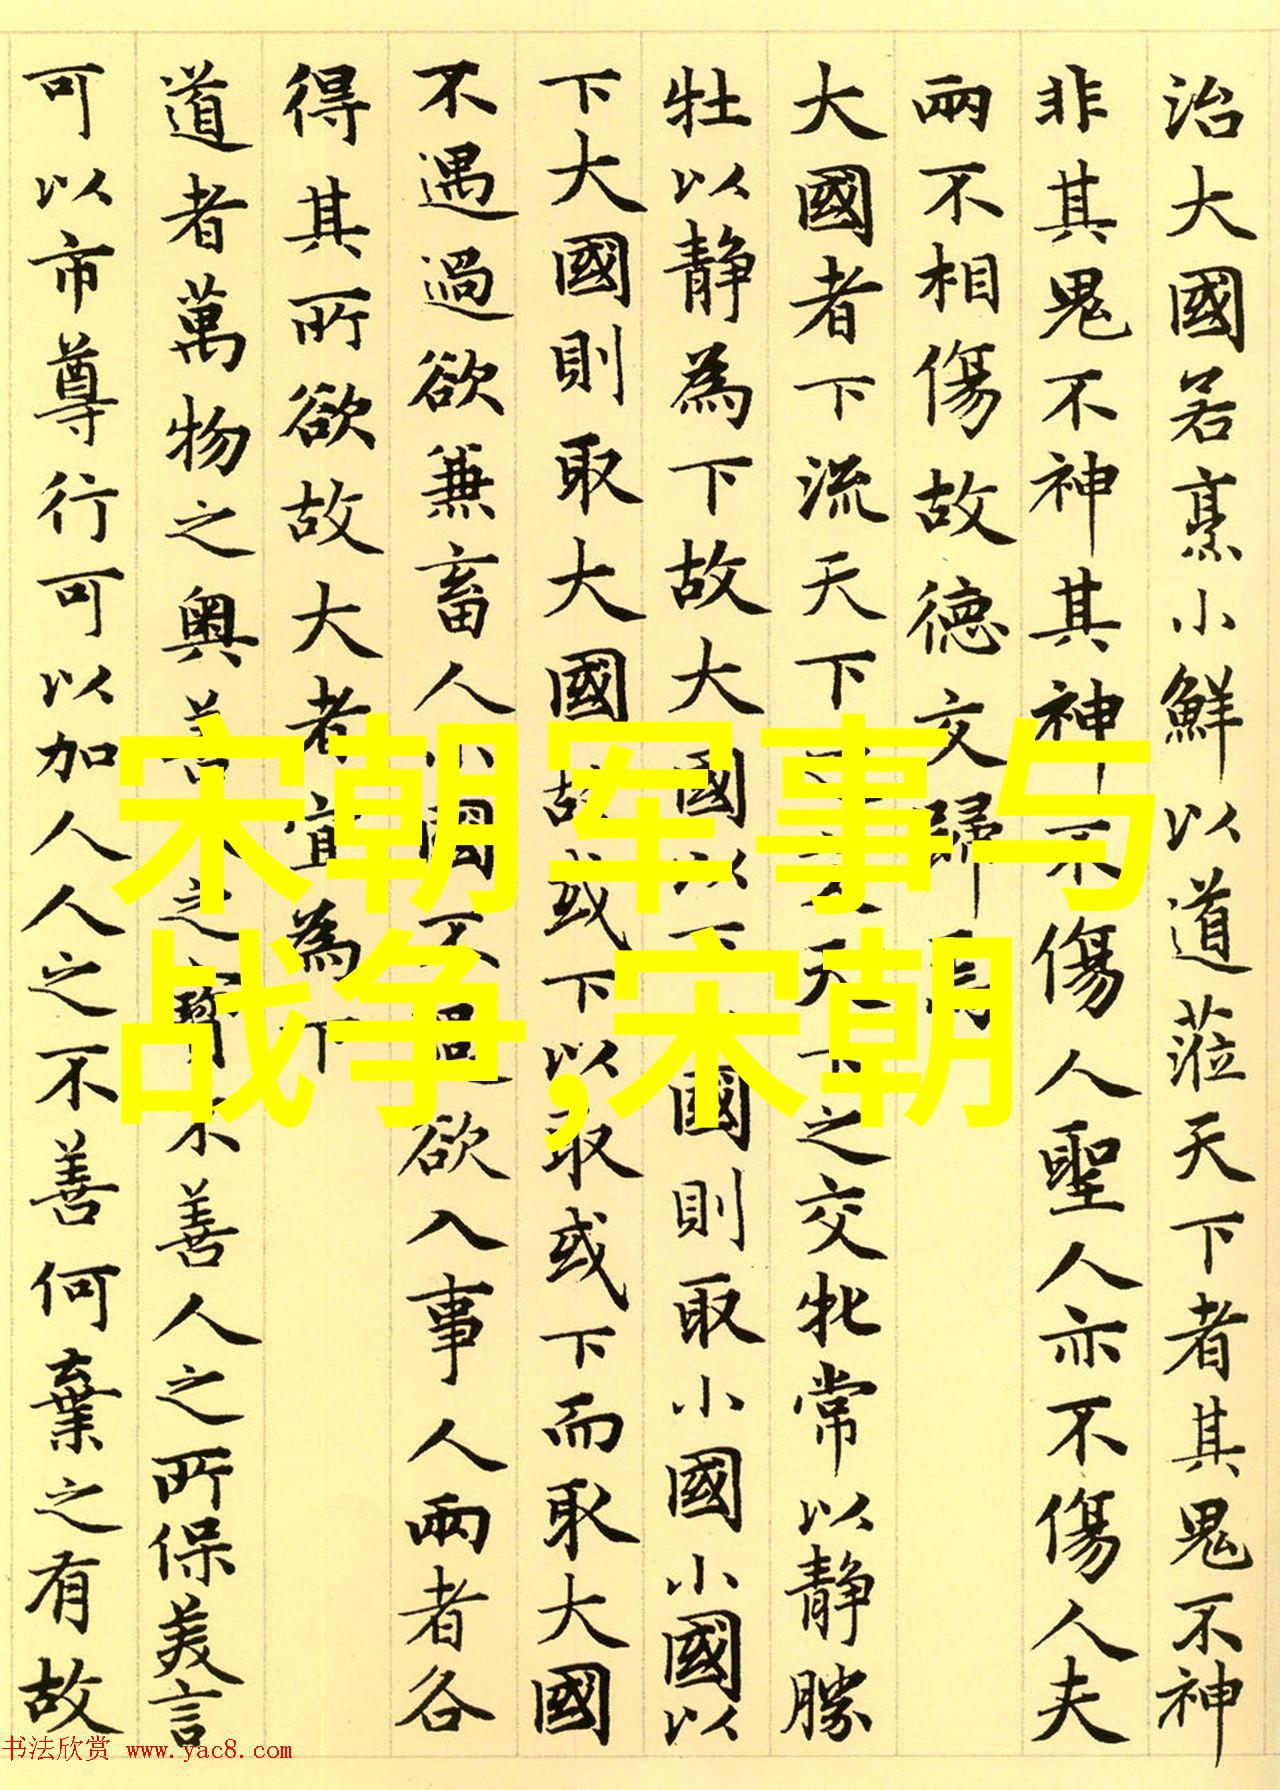 治大國若烹小鮮以道蒞天下者其鬼不神
非其鬼不神其神不傷人聖人亦不傷人夫
兩不相傷故德交歸焉
大國者下流天下之交天下之交牝常以靜勝
牡以靜為下故大國以下小國則取小國小國以
下大國則取大國故或下以取或下而取大國
不遇過欲兼畜人小國不過欲入事人兩者各
得其所欲故大者宜為下
道者萬物之奧善人之寶不善人之所保美言
可以市尊行可以加人人之不善何棄之有故
宋朝军事与
战争,宋朝
书法欣赏 www.yac8.com